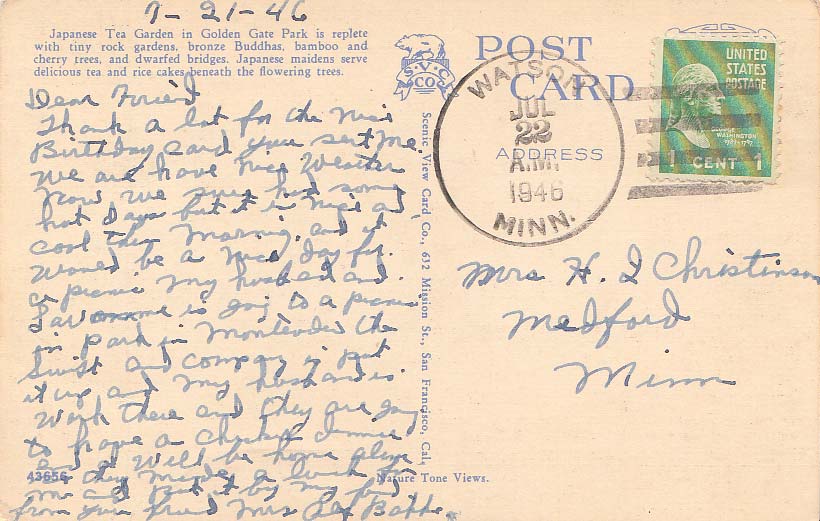 7-21-46
Japanese Tea Garden in Golden Gate Park is replete
with tiny rock gardens, bronze Buddhas, bamboo and
cherry trees, and dwarfed bridges. Japanese maidens serve
delicious tea and rice cakes beneath the flowering trees.
Dear Friend
Thank a lot for the Nice
Birthday card you sent me.
We are have Nice Weather
Now we sure had some
hot Days but it is Nice and
cool this Morning and it
Would be a Nice day for
a picnic My husband and
is going to a picnic
in park in Montevideo the
Swift and company is put
it up and My husband is
Work there and they are going
to have a Chicken dinner
and I Will be home alone
they made a lunch for
me and put it by my bed
from your friend Mrs
43656
S. V. C. CO.
POST CARD
ADDRESS
Scenic View Card Co., 632 Mission St., San Francisco, Cal.
Nature Tone Views.
WATSON
JUL
22
A.M.
1946
MINN.
UNITED
STATES
POSTAGE
GEORGE
WASHINGTON
1789-1797
1 CENT 1
Mrs H. I Christinson
Medford
Minn